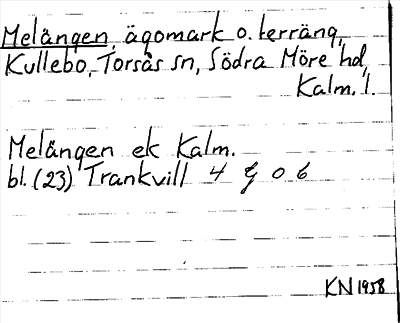 Melängen, ägomark o. terräng,
Kullebo, Torsås sn, Södra Möre hd,
Kalm. l.
Melängen ek Kalm.
bl. (23) Trankvill 4 g 0 6
KN 1958